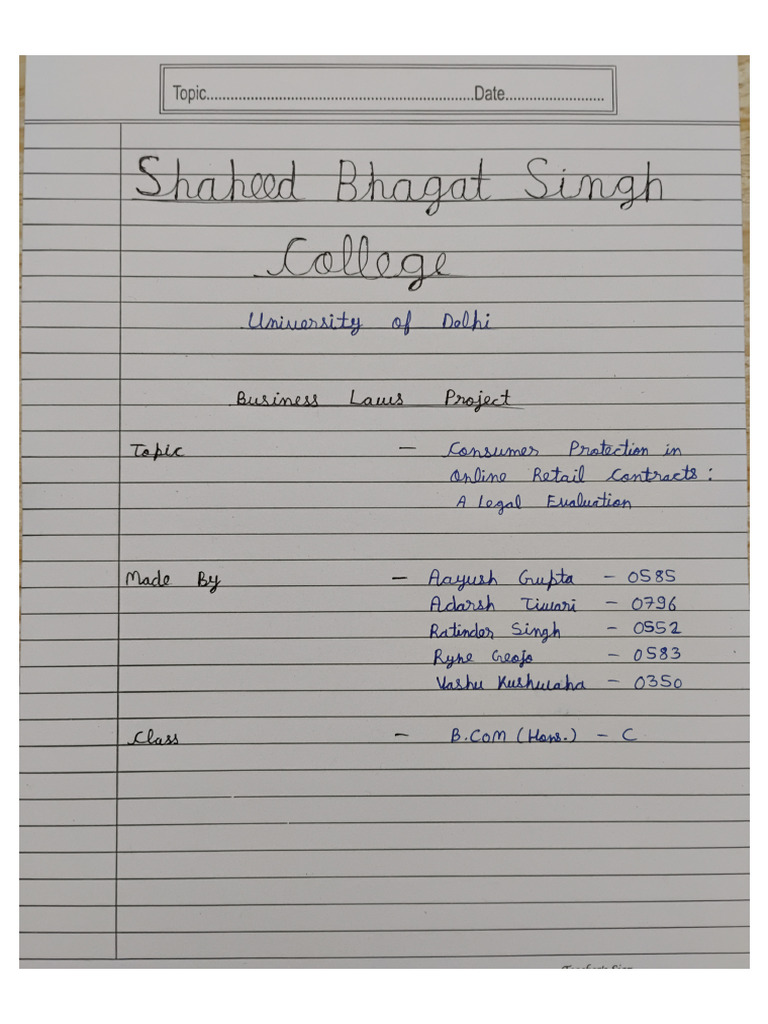 Topic....................................................................Date.........................
Shaheed Bhagat Singh
College
University of Delhi
Business Laws Project
Topic - Consumer Protection in
Online Retail Contracts:
A Legal Evaluation
Made By - Aayush Gupta - 0585
Adarsh Tiwari - 0796
Ratinder Singh - 0552
Ryne Geojo - 0583
Vashu Kushwaha - 0350
Class - B.COM (Hons.) - C